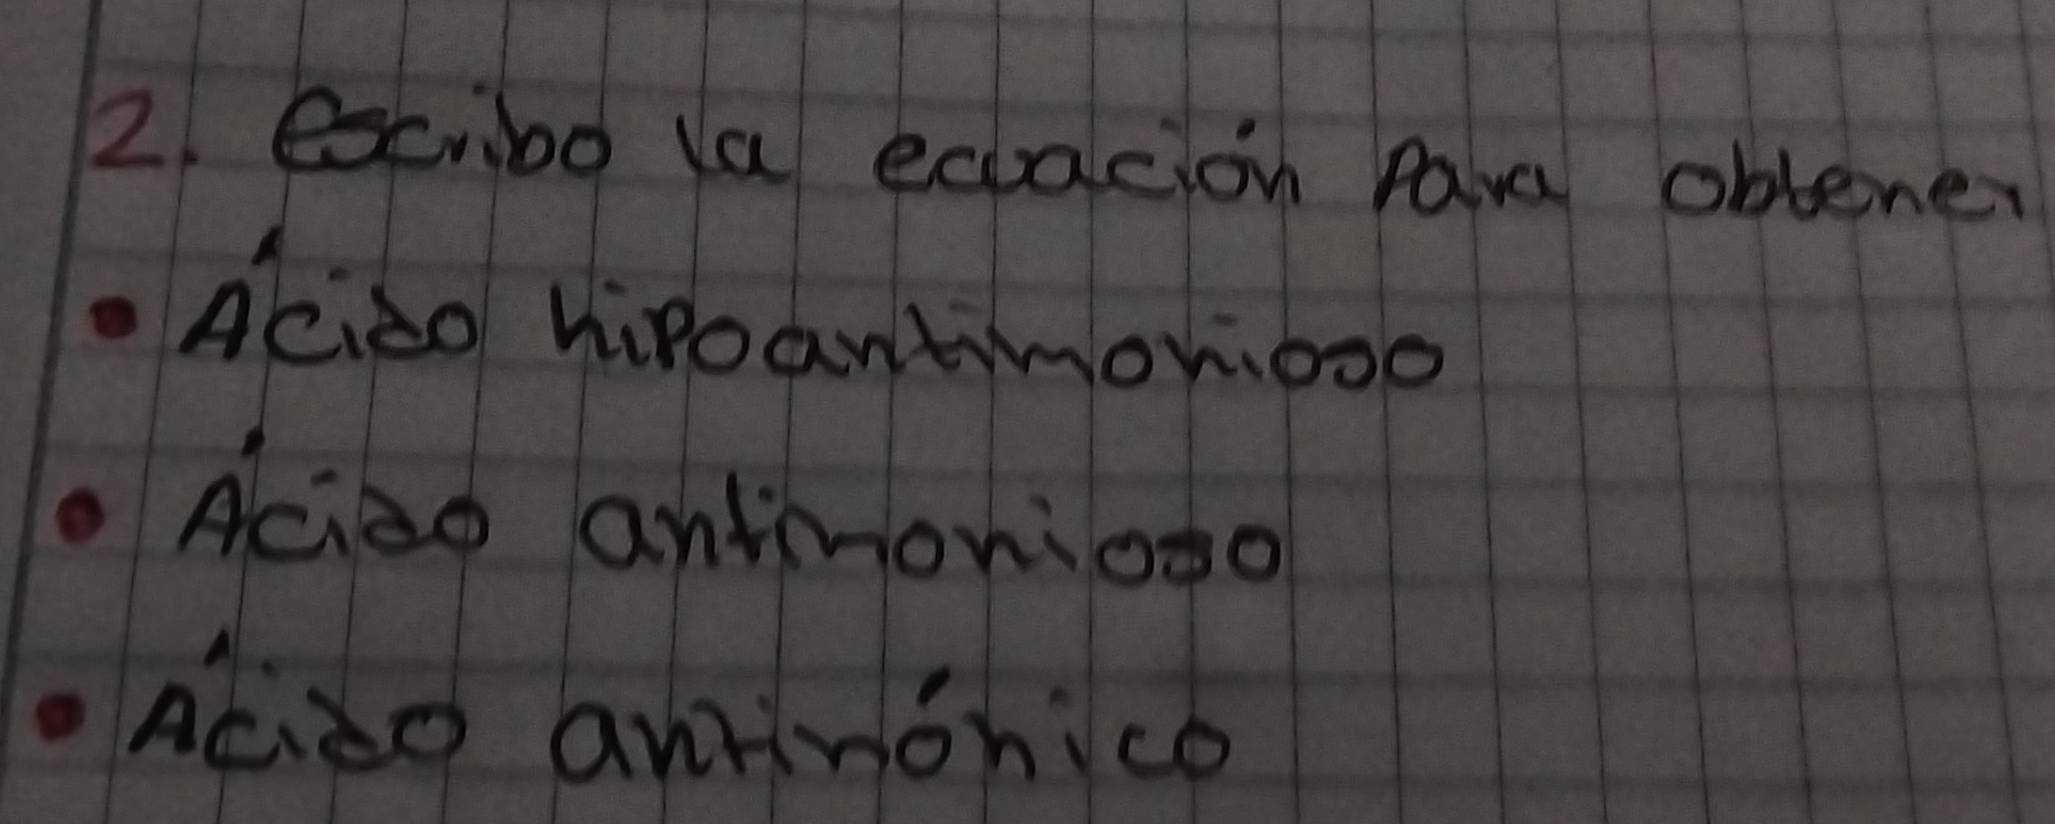 2. escribo la ecuación para obtener
• Ácido hipoantimonioso
• Ácido antimonioso
• Ácido antimónico